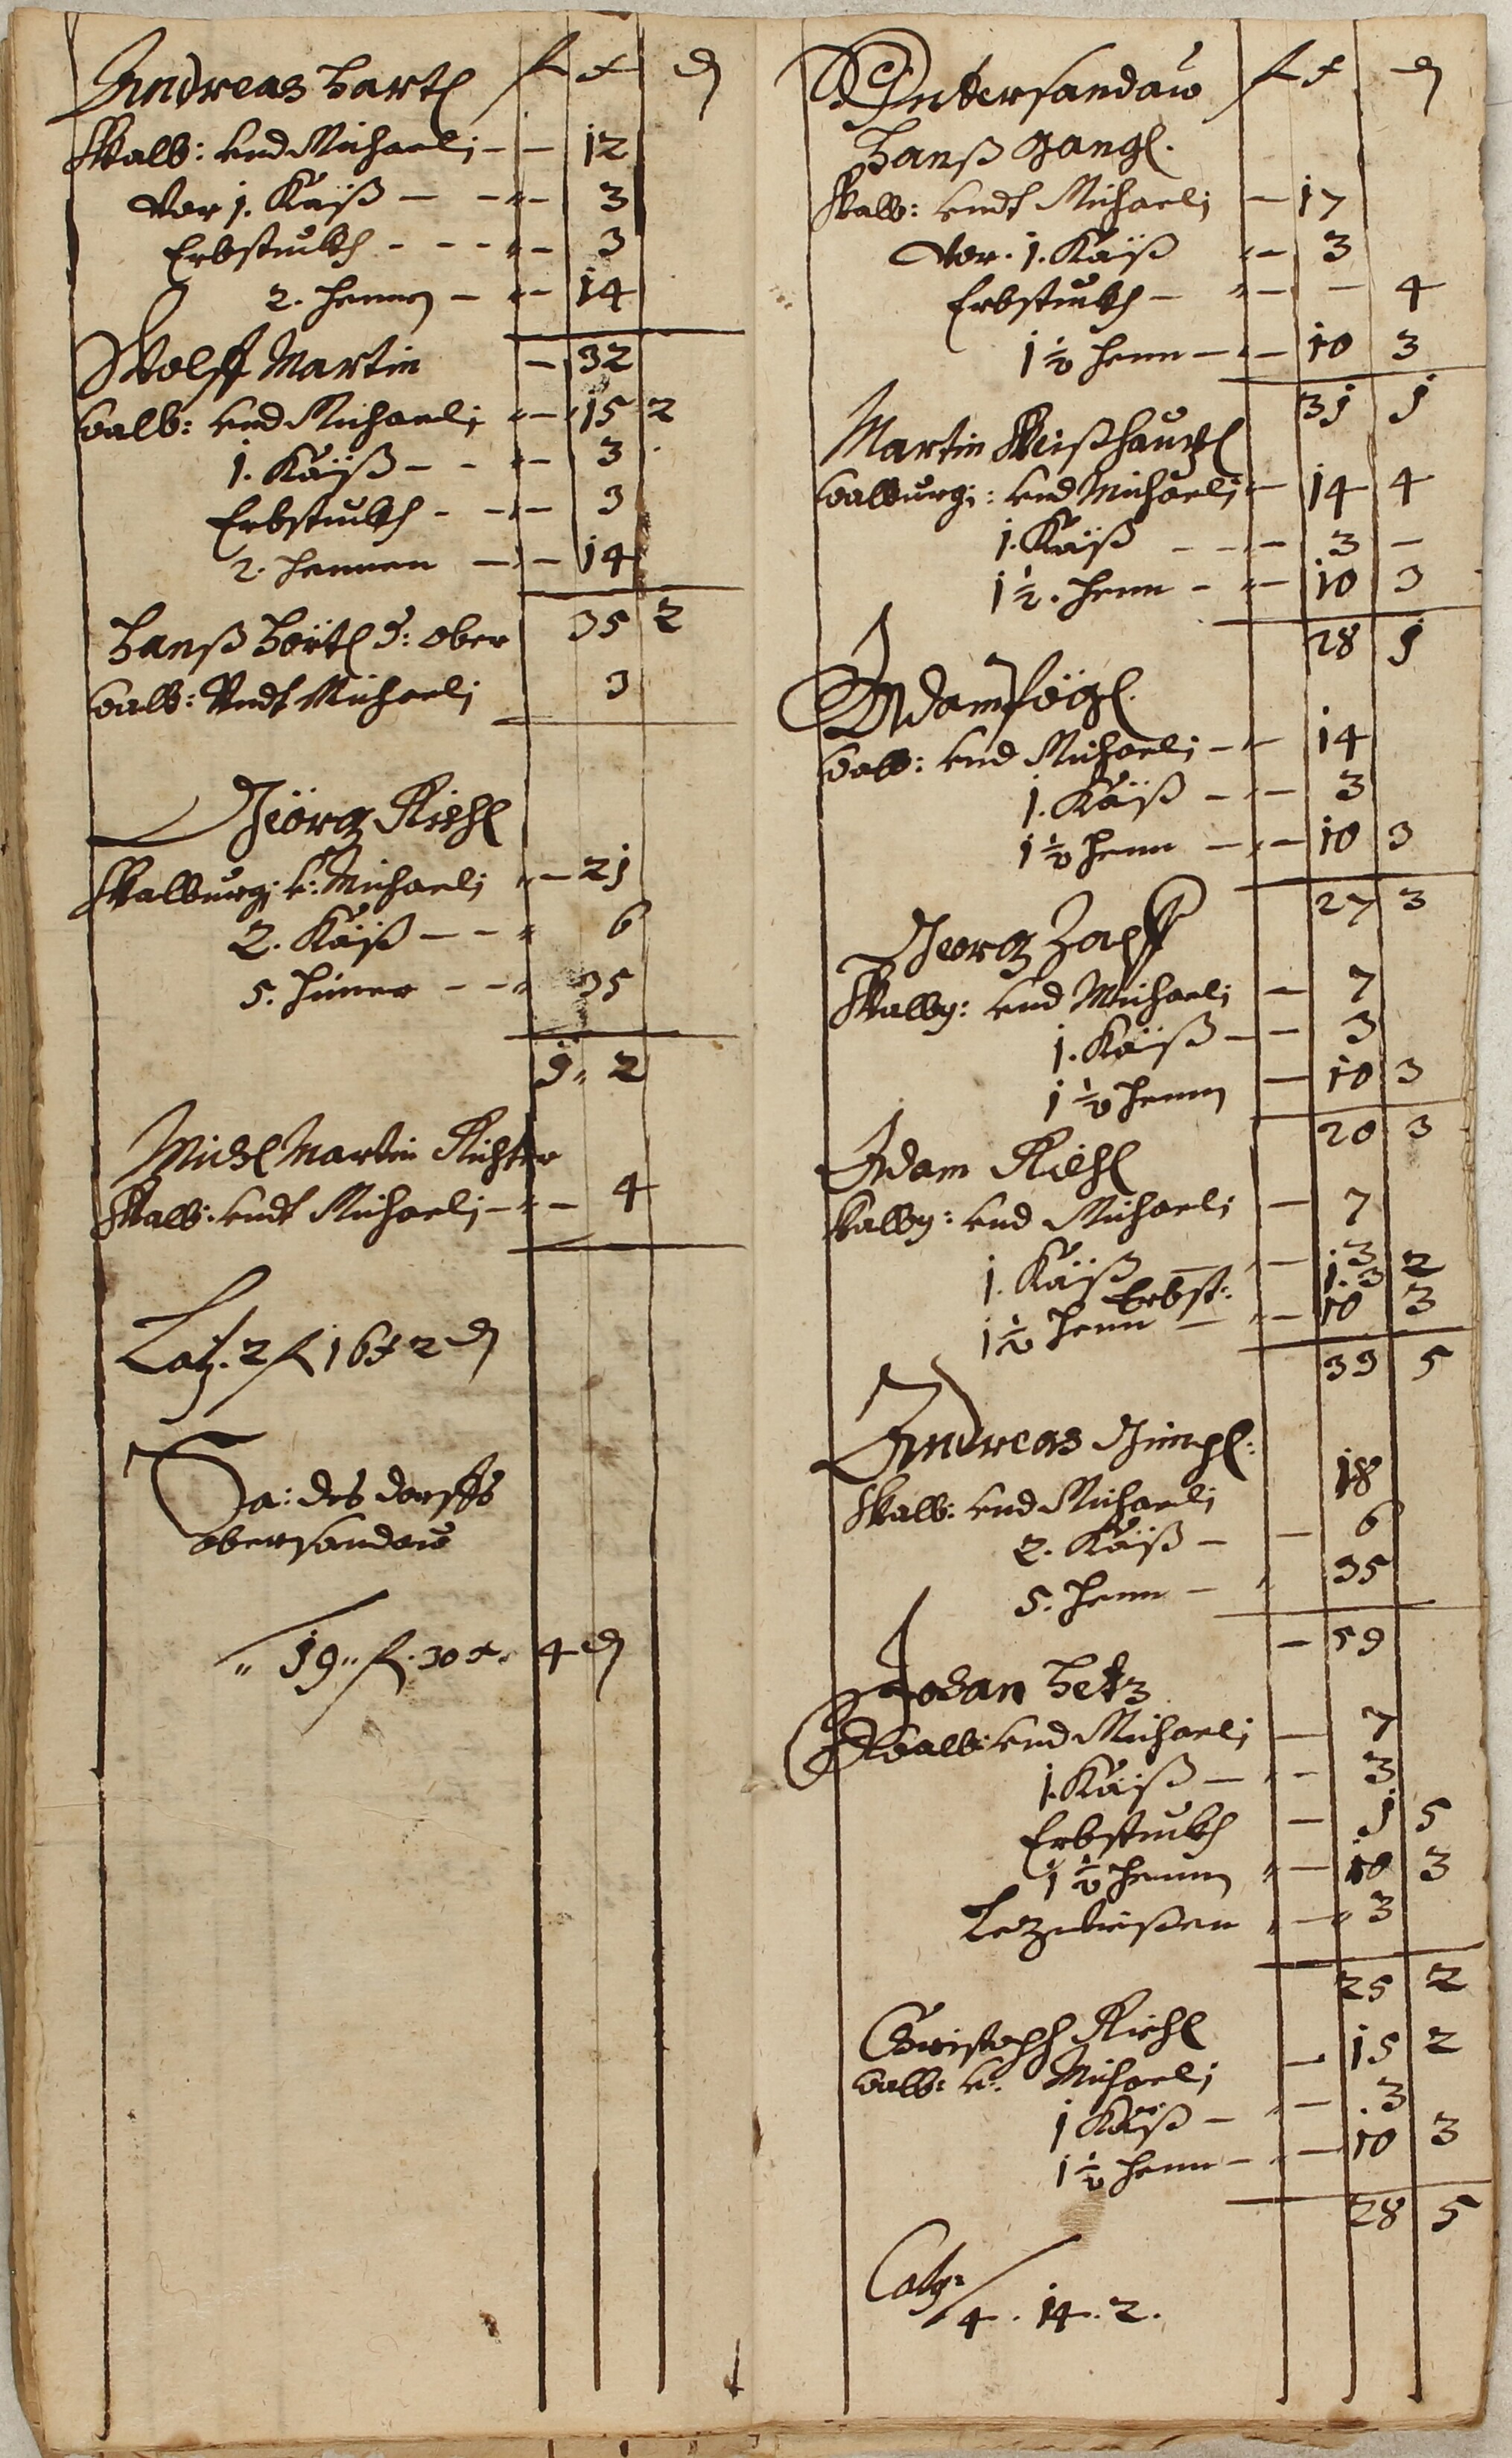 Andreas Hartl fl x d
Walb: und Michaeli - - 12
Vor 1. Käiß - - - 3
Erbstuckh - - - - 3
2. Hennen - - 14
- 32
Wolff Martin
Walb: und Michaeli - 15 2
1. Käiß - - - 3
Erbstuckh - - - 3
2. Hennen - - 14
35 2
Hanß d: ober
Walb: Undt Michaeli 3
Geörg Riehl
Walburgi u: Michaeli - 21
2. Käiß - - 6
5. Hüner - - 35
1 2
Michl Martin Richter
Walb: undt Michaeli - - 4
Lat. 2 fl 16 x 2 d
Sa: des dorffs
obersandau
19 fl. 30 x. 4 d
Untersandau fl x d
Hanß Gangl.
Walb: undt Michaeli - 17
Vor. 1. Käiß - 3
Erbstuckh - - - 4
1 1/2 Henn - - 10 3
31 1
Martin
Walburgi: und Michaeli - 14 4
1. Käiß - - - 3 -
1 1/2. Henn - - 10 3
28 1
Adam
Walb: und Michaeli - - 14
1. Käiß - - 3
1 1/2 Henn - - 10 3
27 3
Georg Zapff
Walbg: und Michaeli - 7
1. Käiß - - 3
1 1/2 Hennen - 10 3
20 3
Adam Riehl
Walbg: und Michaeli - 7
1. Käiß - - 3
Erbst: 1.3 2
1 1/2 Henn - - 10 3
39 5
Andreas Gümpl:
Walb: und Michaeli 18
2. Käiß - - 6
5. Henn - 35
- 59
Johan Hetz
Walb: und Michaeli - 7
1. Käiß - - 3
Erbstuckh - 1 5
1 1/2 Hennen - 10 3
- 3
25 2
Christoph Riehl
Walb: u: Michaeli - 15 2
1 Käiß - - 3
1 1/2 Henn - - 10 3
28 5
Latg:
4. 14. 2.